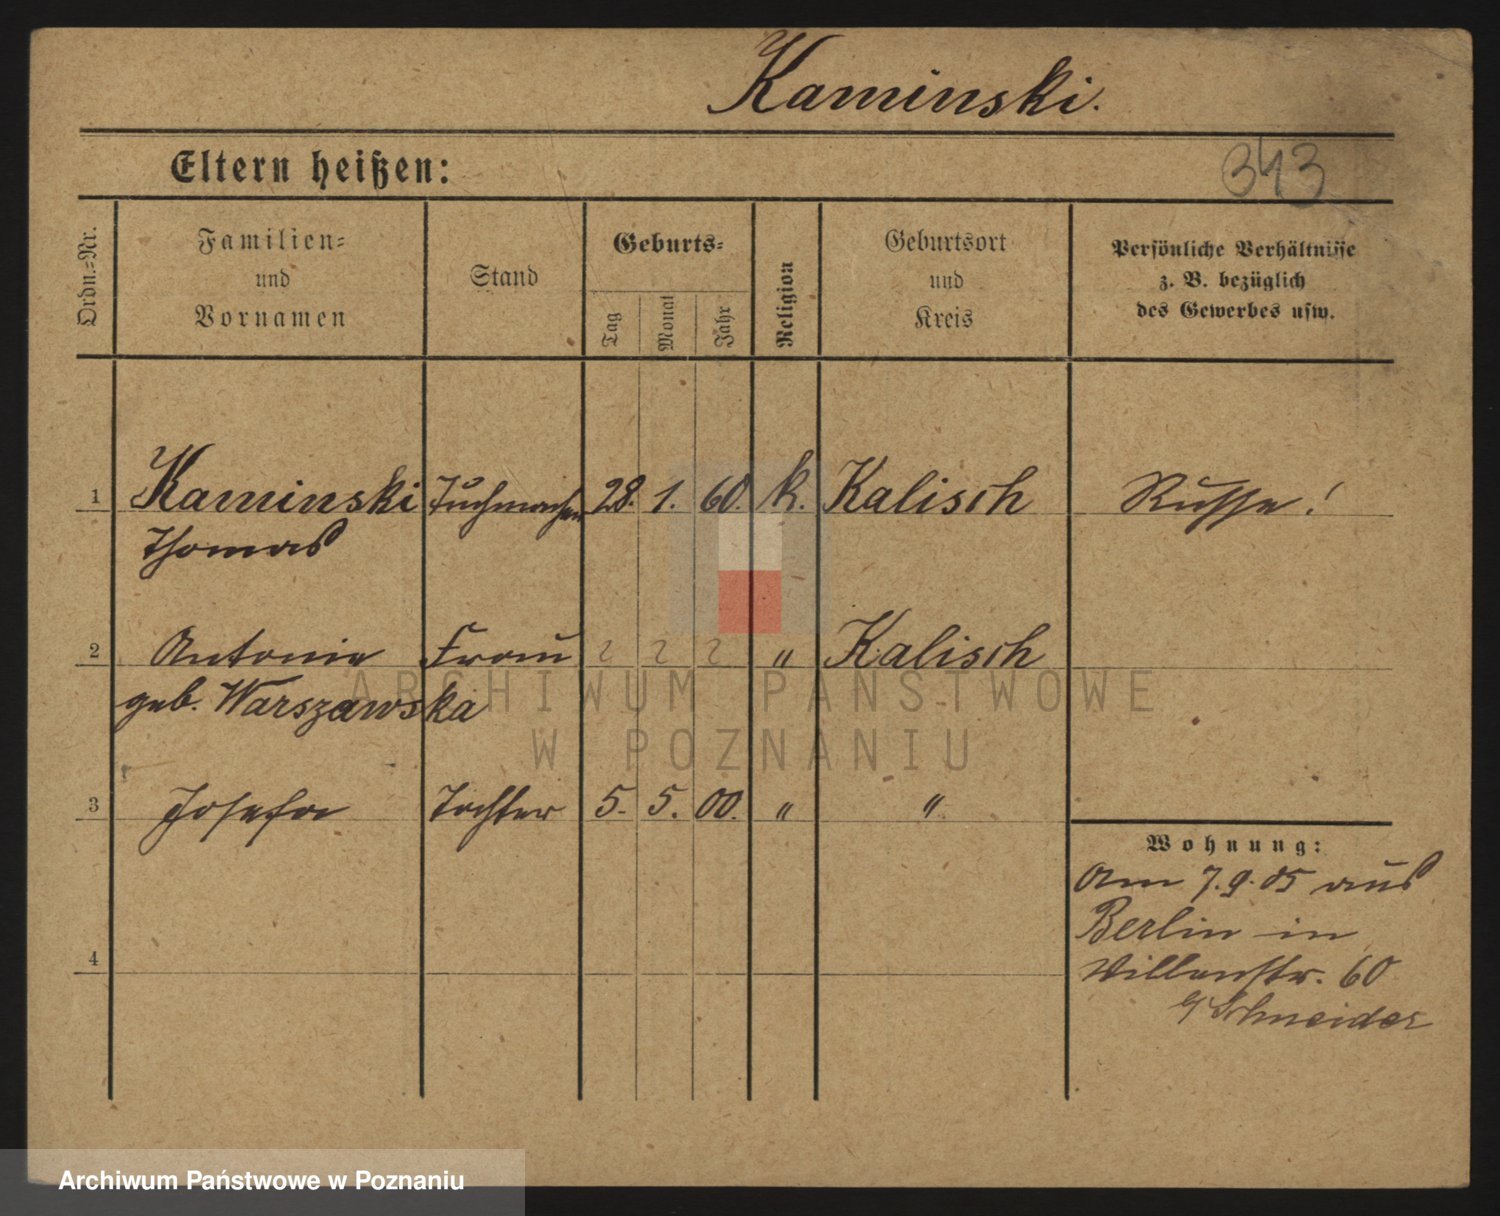 Kaminski.
Eltern heißen:
343
Ordn.=Nr.
Familien=
und
Vornamen
Stand
Geburts=
Tag
Monat
Jahr
Religion
Geburtsort
und
Kreis
Persönliche Verhältnisse
z. B. bezüglich
des Gewerbes usw.
1 Kaminski Tuchmacher 28. 1. 60. k. Kalisch Russe!
Thomas
2 Antonie Frau ? ? ? " Kalisch
geb. Warszawska
3 Josefa Tochter 5. 5. 00. " "
Wohnung:
Am 7.9.05 aus
Berlin in
4
Villenstr. 60
b/ Schneider
ARCHIWUM PAŃSTWOWE
W POZNANIU
Archiwum Państwowe w Poznaniu